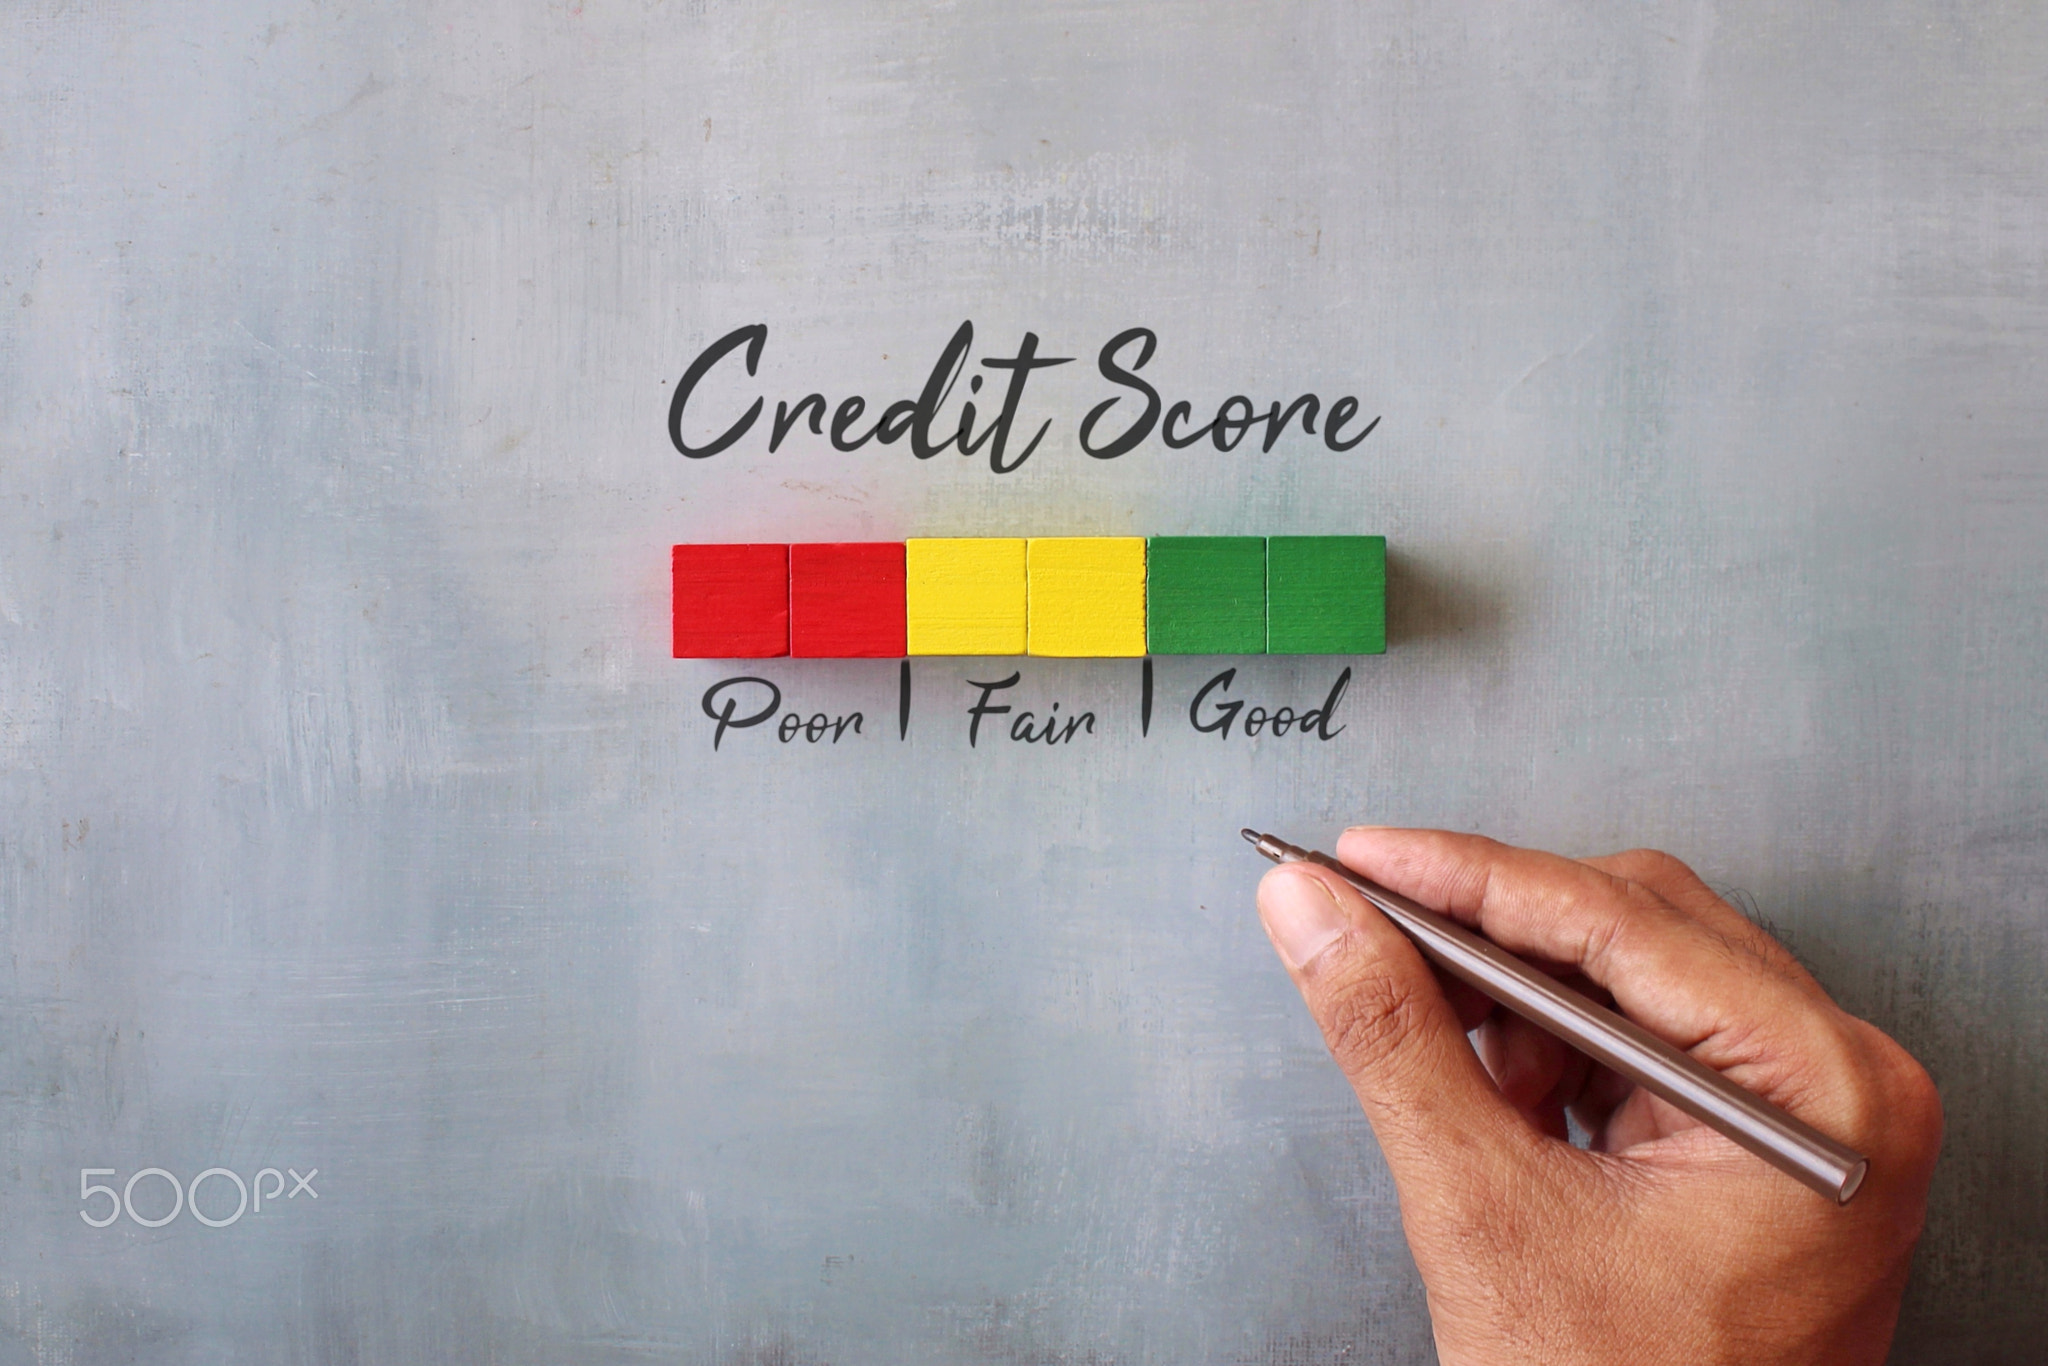 Credit Score
Poor | Fair | Good
500px